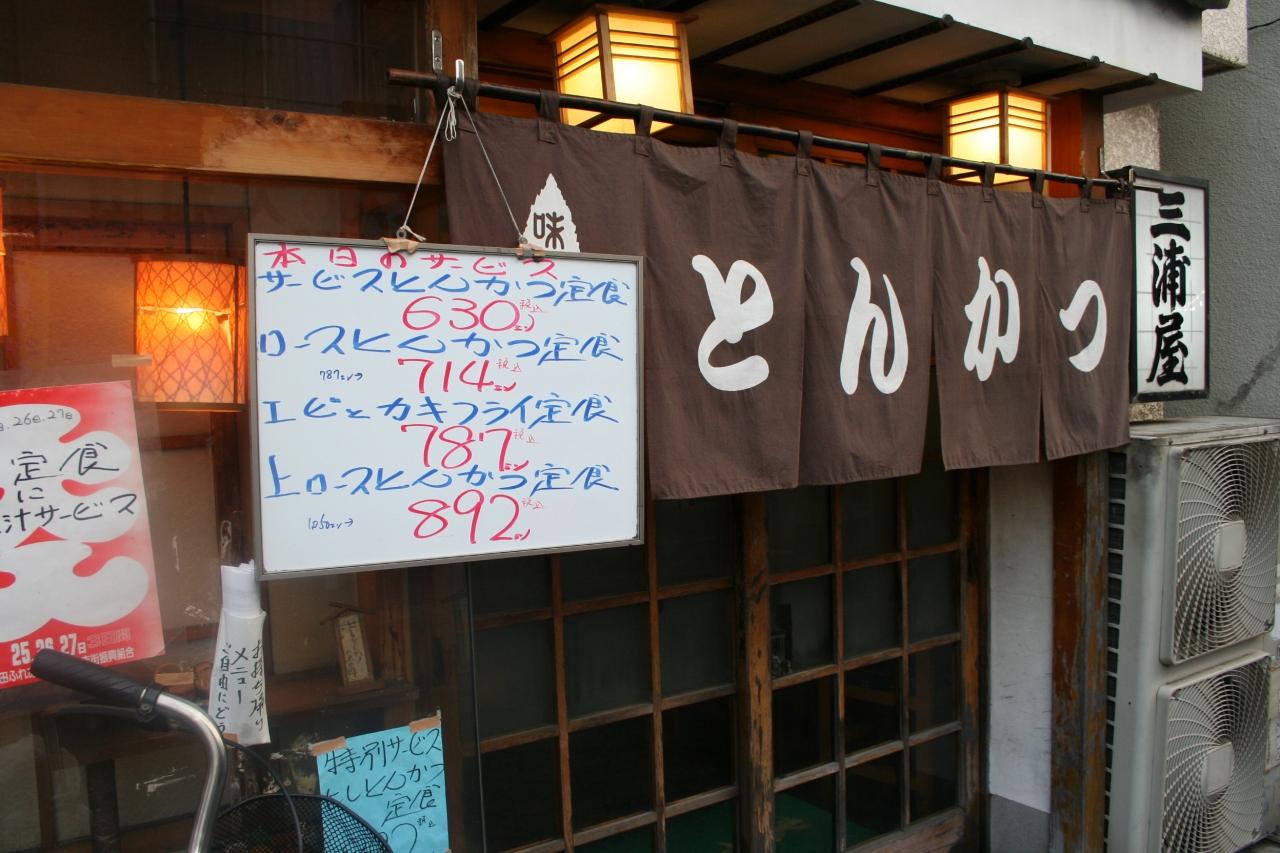 本日のサービス
サービスとんかつ定食
630エン 税込
ロースとんかつ定食
787エン→ 714エン 税込
エビとカキフライ定食
787エン 税込
上ロースとんかつ定食
1050エン→ 892エン 税込
味
とんかつ
三浦屋
26日.27日
定食
に
汁サービス
25.26.27日 3日間
街振興組合
お持ち帰り
メニュー
ご自由にどう
特別サービス
としとんかつ
定食
税込